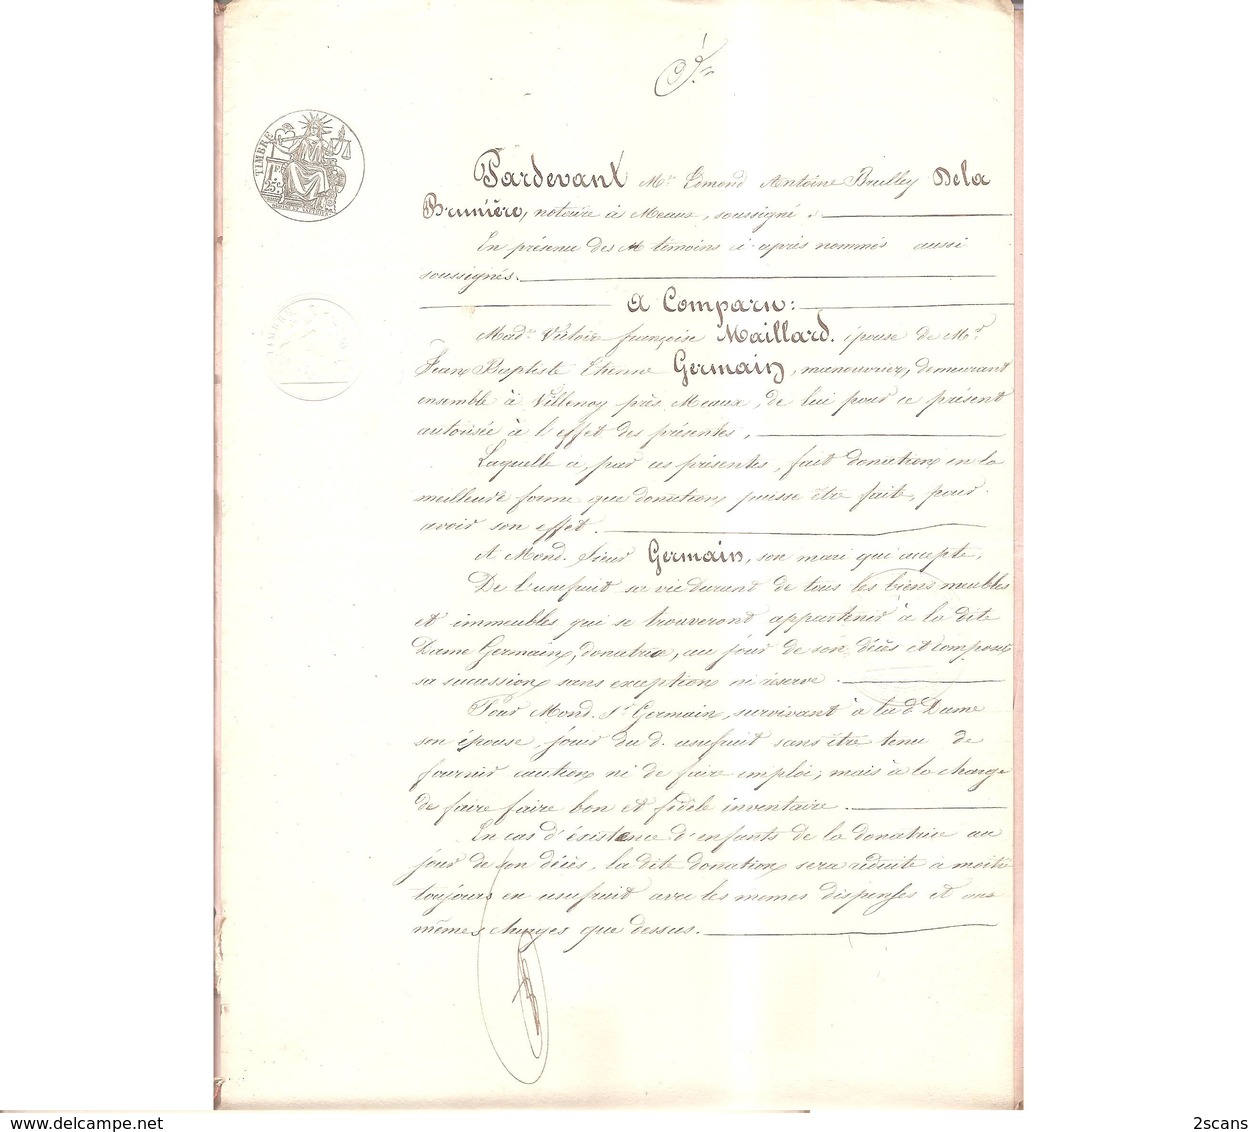 TIMBRE
Pardevant Me Edmond Antoine Brulley De la
Brunière, notaire à Meaux, soussigné.
En présence des M témoins ci-après nommés aussi
soussignés.
A Comparu:
Made Victoire françoise Maillard. épouse de Mr
Jean Baptiste Etienne Germain, manouvrier, demeurant
ensemble à Villenoy près Meaux, de lui pour ce présent
autorisée à l'effet des présentes,
Laquelle a, par ces présentes, fait donation en la
meilleure forme que donation puisse être faite, pour
avoir son effet.
A Mond. Sieur Germain, son mari qui accepte,
De l'usufruit sa vie durant de tous les biens meubles
et immeubles qui se trouveront appartenir à la dite
Dame Germain, donatrice, au jour de son décès et composer
sa succession sans exception ni réserve.
Pour Mond. Sr Germain, survivant à lad. Dame
son épouse, jouir dud. usufruit sans être tenu de
fournir caution ni de faire emploi, mais à la charge
de faire faire bon et fidèle inventaire.
En cas d'éxistence d'enfants de la donatrice au
jour de son décès, la dite donation sera réduite à moitié
toujours en usufruit avec les memes dispenses et aux
mêmes charges que dessus.
2scans